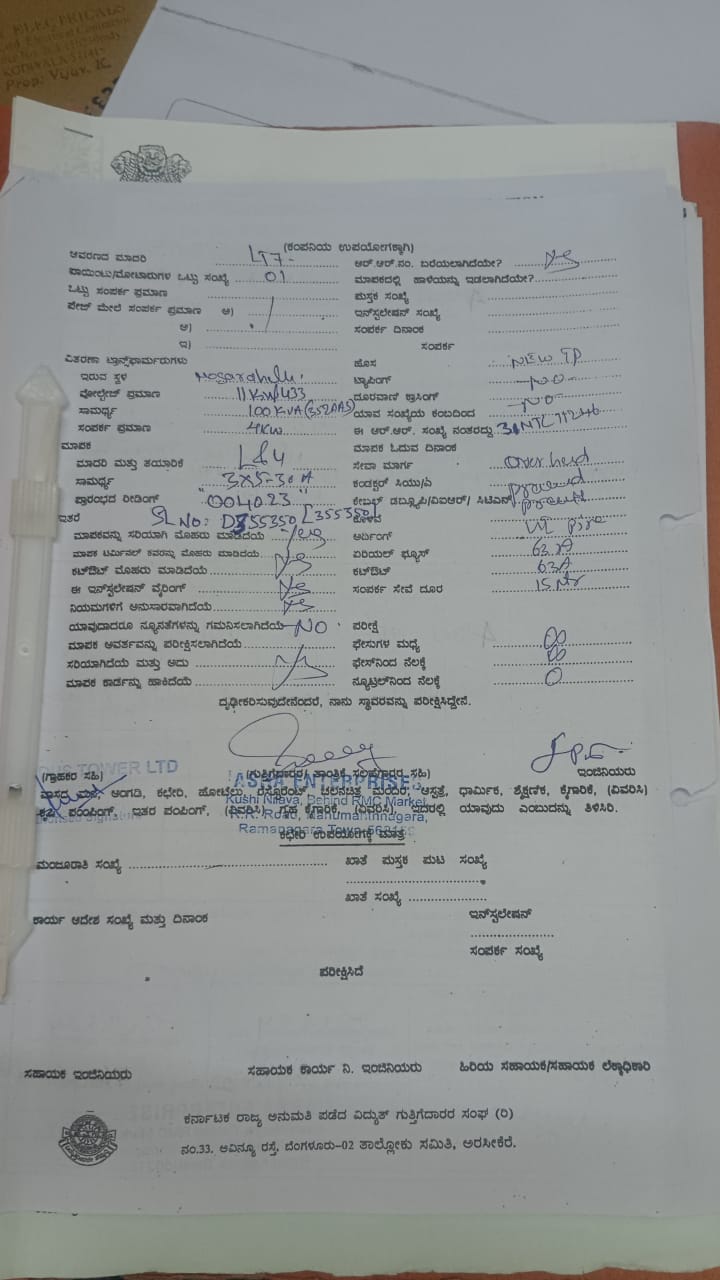 ELECTRICALS
KODIYALA 571415
Prop. Vijay. K
(ಕಂಪನಿಯ ಉಪಯೋಗಕ್ಕಾಗಿ)
ಆವರಣದ ಮಾದರಿ LT7- ಆರ್.ಆರ್.ನಂ. ಬರೆಯಲಾಗಿದೆಯೇ? yes
ಪಾಯಿಂಟು/ಮೋಟಾರುಗಳ ಒಟ್ಟು ಸಂಖ್ಯೆ 01 ಮಾಪಕದಲ್ಲಿ ಹಾಳೆಯನ್ನು ಇಡಲಾಗಿದೆಯೇ?
ಒಟ್ಟು ಸಂಪರ್ಕ ಪ್ರಮಾಣ ಪುಸ್ತಕ ಸಂಖ್ಯೆ
ಪೇಜ್ ಮೇಲೆ ಸಂಪರ್ಕ ಪ್ರಮಾಣ ಅ) ಇನ್‌ಸ್ಟಲೇಷನ್ ಸಂಖ್ಯೆ
ಆ) ಸಂಪರ್ಕ ದಿನಾಂಕ
ಇ) ಸಂಪರ್ಕ
ವಿತರಣಾ ಟ್ರಾನ್ಸ್‌ಫಾರ್ಮರುಗಳು ಹೊಸ NEW TP
ಇರುವ ಸ್ಥಳ ಟ್ಯಾಪಿಂಗ್ -NO-
ವೋಲ್ಟೇಜ್ ಪ್ರಮಾಣ 11KV/433 ದೂರವಾಣಿ ಕ್ರಾಸಿಂಗ್ -NO-
ಸಾಮರ್ಥ್ಯ 100KVA ಯಾವ ಸಂಖ್ಯೆಯ ಕಂಬದಿಂದ
ಸಂಪರ್ಕ ಪ್ರಮಾಣ 4KW ಈ ಆರ್.ಆರ್. ಸಂಖ್ಯೆ ನಂತರದ್ದು
ಮಾಪಕ ಮಾಪಕ ಓದುವ ದಿನಾಂಕ
ಮಾದರಿ ಮತ್ತು ತಯಾರಿಕೆ ಸೇವಾ ಮಾರ್ಗ Over head
ಸಾಮರ್ಥ್ಯ 3X5-30A ಕಂಡಕ್ಟರ್ ಸಿಯು/ಏ
ಪ್ರಾರಂಭದ ರೀಡಿಂಗ್ "004023" ಕೇಬಲ್ ಡಬ್ಲ್ಯೂಪಿ/ವಿಐಆರ್/ ಸಿಟಿಎಸ್
ಇತರೆ SL NO: D355350 [355350]
ಮಾಪಕವನ್ನು ಸರಿಯಾಗಿ ಮೊಹರು ಮಾಡಿದೆಯೆ yes ಅರ್ಥಿಂಗ್
ಮಾಪಕ ಟರ್ಮಿನಲ್ ಕವರನ್ನು ಮೊಹರು ಮಾಡಿದೆಯೆ yes ಏರಿಯಲ್ ಫ್ಯೂಸ್ 63A
ಕಟ್‌ಔಟ್ ಮೊಹರು ಮಾಡಿದೆಯೆ ಕಟ್‌ಔಟ್ 63A
ಈ ಇನ್‌ಸ್ಟಲೇಷನ್ ವೈರಿಂಗ್ yes ಸಂಪರ್ಕ ಸೇವೆ ದೂರ 15 Mtr
ನಿಯಮಗಳಿಗೆ ಅನುಸಾರವಾಗಿದೆಯೆ yes
ಯಾವುದಾದರೂ ನ್ಯೂನತೆಗಳನ್ನು ಗಮನಿಸಲಾಗಿದೆಯೆ NO ಪರೀಕ್ಷೆ
ಮಾಪಕ ಆವರ್ತವನ್ನು ಪರೀಕ್ಷಿಸಲಾಗಿದೆಯೆ ಫೇಸುಗಳ ಮಧ್ಯೆ ∞
ಸರಿಯಾಗಿದೆಯೆ ಮತ್ತು ಅದು ಫೇಸ್‌ನಿಂದ ನೆಲಕ್ಕೆ ∞
ಮಾಪಕ ಕಾರ್ಡನ್ನು ಹಾಕಿದೆಯೆ ನ್ಯೂಟ್ರಲ್‌ನಿಂದ ನೆಲಕ್ಕೆ 0
ದೃಢೀಕರಿಸುವುದೇನೆಂದರೆ, ನಾನು ಸ್ಥಾವರವನ್ನು ಪರೀಕ್ಷಿಸಿದ್ದೇನೆ.
TOWER LTD
(ಗ್ರಾಹಕರ ಸಹಿ) (ಗುತ್ತಿಗೆದಾರರ/ ತಾಂತ್ರಿಕ ಸಲಹೆಗಾರರ ಸಹಿ) ಇಂಜಿನಿಯರು
ASHA ENTERPRISES
ವಾಸದ ಮನೆ, ಅಂಗಡಿ, ಕಛೇರಿ, ಹೋಟೆಲು, ರೆಸ್ಟೋರೆಂಟ್, ಚಲನಚಿತ್ರ ಮಂದಿರ, ಆಸ್ಪತ್ರೆ, ಧಾರ್ಮಿಕ, ಶೈಕ್ಷಣಿಕ, ಕೈಗಾರಿಕೆ, (ವಿವರಿಸಿ)
Kushi Nilaya, Behind RMC Market,
ಕೃಷಿ ಪಂಪಿಂಗ್, ಇತರ ಪಂಪಿಂಗ್, (ವಿವರಿಸಿ) ಗೃಹ ಕೈಗಾರಿಕೆ (ವಿವರಿಸಿ) ಇದರಲ್ಲಿ ಯಾವುದು ಎಂಬುದನ್ನು ತಿಳಿಸಿರಿ.
R.R. Road, Hanumanthnagara,
Ramanagara Town
ಕಛೇರಿ ಉಪಯೋಗಕ್ಕೆ ಮಾತ್ರ
ಮಂಜೂರಾತಿ ಸಂಖ್ಯೆ ಖಾತೆ ಪುಸ್ತಕ ಪುಟ ಸಂಖ್ಯೆ
ಖಾತೆ ಸಂಖ್ಯೆ
ಕಾರ್ಯ ಆದೇಶ ಸಂಖ್ಯೆ ಮತ್ತು ದಿನಾಂಕ ಇನ್‌ಸ್ಟಲೇಷನ್
ಸಂಪರ್ಕ ಸಂಖ್ಯೆ
ಪರೀಕ್ಷಿಸಿದೆ
ಸಹಾಯಕ ಇಂಜಿನಿಯರು ಸಹಾಯಕ ಕಾರ್ಯ ನಿ. ಇಂಜಿನಿಯರು ಹಿರಿಯ ಸಹಾಯಕ/ಸಹಾಯಕ ಲೆಕ್ಕಾಧಿಕಾರಿ
ಕರ್ನಾಟಕ ರಾಜ್ಯ ಅನುಮತಿ ಪಡೆದ ವಿದ್ಯುತ್ ಗುತ್ತಿಗೆದಾರರ ಸಂಘ (ರಿ)
ನಂ.33, ಅವಿನ್ಯೂ ರಸ್ತೆ, ಬೆಂಗಳೂರು-02 ತಾಲ್ಲೋಕು ಸಮಿತಿ, ಅರಸೀಕೆರೆ.